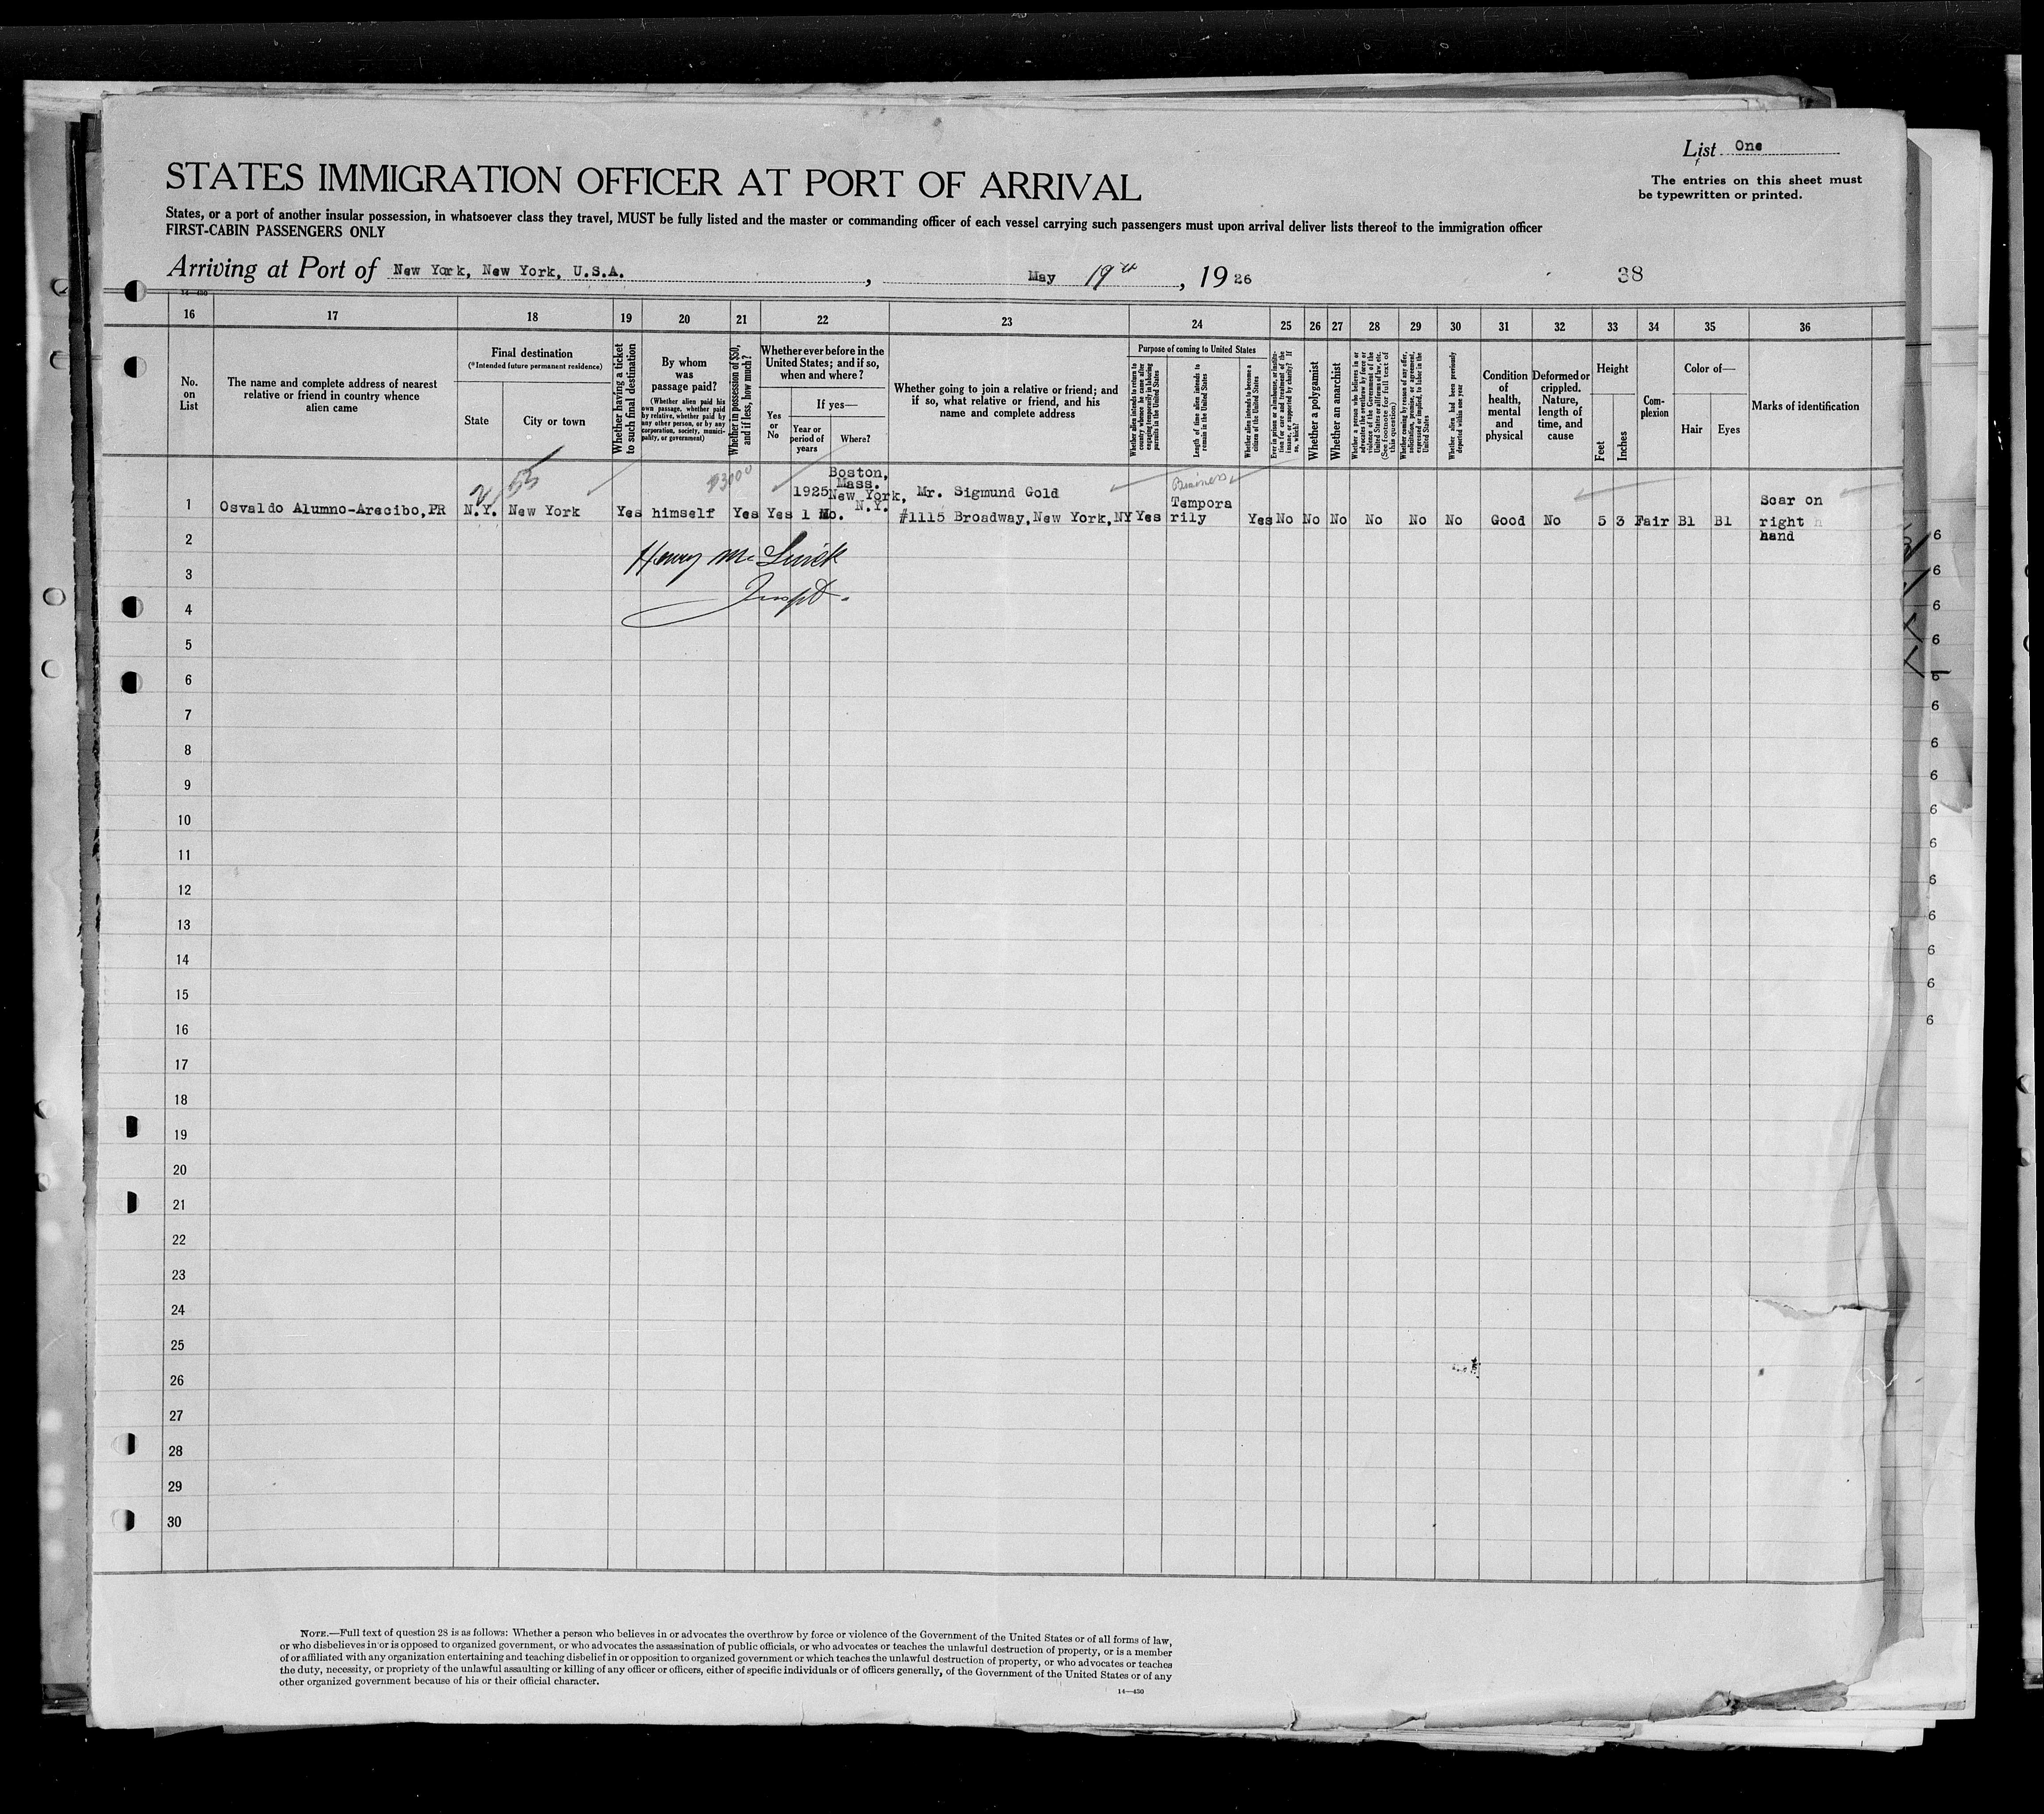 List One
The entries on this sheet must
be typewritten or printed.
STATES IMMIGRATION OFFICER AT PORT OF ARRIVAL
States, or a port of another insular possession, in whatsoever class they travel, MUST be fully listed and the master or commanding officer of each vessel carrying such passengers must upon arrival deliver lists thereof to the immigration officer
FIRST-CABIN PASSENGERS ONLY
Arriving at Port of New York, New York, U.S.A., May 19th, 1926
38
14—430
16 17 18 19 20 21 22 23 24 25 26 27 28 29 30 31 32 33 34 35 36
No. on List
The name and complete address of nearest relative or friend in country whence alien came
Final destination
(*Intended future permanent residence)
State
City or town
Whether having a ticket to such final destination
By whom was passage paid?
(Whether alien paid his own passage, whether paid by relative, whether paid by any other person, or by any corporation, society, municipality, or government)
Whether in possession of $50, and if less, how much?
Whether ever before in the United States; and if so, when and where?
Yes or No
If yes—
Year or period of years
Where?
Whether going to join a relative or friend; and if so, what relative or friend, and his name and complete address
Purpose of coming to United States
Whether alien intends to return to country whence he came after engaging temporarily in laboring pursuits in the United States
Length of time alien intends to remain in the United States
Whether alien intends to become a citizen of the United States
Ever in prison or almshouse, or institution for care and treatment of the insane, or supported by charity? If so, which?
Whether a polygamist
Whether an anarchist
Whether a person who believes in or advocates the overthrow by force or violence of the Government of the United States or all forms of law, etc. (See footnote for full text of this question)
Whether coming by reason of any offer, solicitation, promise, or agreement, expressed or implied, to labor in the United States
Whether alien had been previously deported within one year
Condition of health, mental and physical
Deformed or crippled. Nature, length of time, and cause
Height
Feet
Inches
Complexion
Color of—
Hair
Eyes
Marks of identification
55
$3000
Boston, Mass.
Business
1925 New York, N.Y. Mr. Sigmund Gold
1 Osvaldo Alumno-Arecibo,PR N.Y. New York Yes himself Yes Yes 1 Mo. #1115 Broadway,New York,NY Yes Temporarily Yes No No No No No No Good No 5 3 Fair Bl Bl Scar on right hand
2
Henry
3
Inspt.
4
5
6
7
8
9
10
11
12
13
14
15
16
17
18
19
20
21
22
23
24
25
26
27
28
29
30
NOTE.—Full text of question 28 is as follows: Whether a person who believes in or advocates the overthrow by force or violence of the Government of the United States or of all forms of law,
or who disbelieves in or is opposed to organized government, or who advocates the assassination of public officials, or who advocates or teaches the unlawful destruction of property, or is a member
of or affiliated with any organization entertaining and teaching disbelief in or opposition to organized government or which teaches the unlawful destruction of property, or who advocates or teaches
the duty, necessity, or propriety of the unlawful assaulting or killing of any officer or officers, either of specific individuals or of officers generally, of the Government of the United States or of any
other organized government because of his or their official character.
14—430